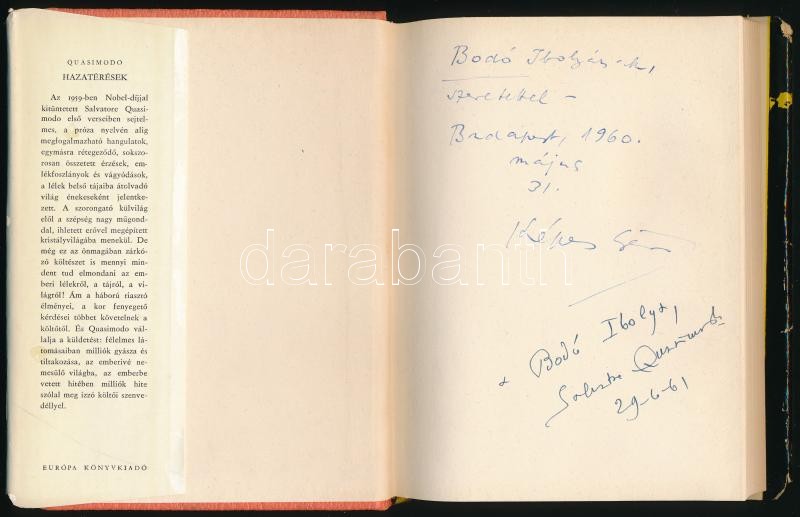 QUASIMODO
HAZATÉRÉSEK
Az 1959-ben Nobel-díjjal
kitüntetett Salvatore Quasi-
modo első verseiben sejtel-
mes, a próza nyelvén alig
megfogalmazható hangulatok,
egymásra rétegeződő, sokszo-
rosan összetett érzések, em-
lékfoszlányok és vágyódások,
a lélek belső tájaiba átolvadó
világ énekeseként jelentke-
zett. A szorongató külvilág
elől a szépség nagy műgond-
dal, ihletett erővel megépített
kristályvilágába menekül. De
még ez az önmagában zárkó-
zó költészet is mennyi min-
dent tud elmondani az em-
beri lélekről, a tájról, a vi-
lágról! Ám a háború riasztó
élményei, a kor fenyegető
kérdései többet követelnek a
költőtől. És Quasimodo vál-
lalja a küldetést: félelmes lá-
tomásaiban milliók gyásza és
tiltakozása, az emberivé ne-
mesülő világba, az emberbe
vetett hitében milliók hite
szólal meg izzó költői szenve-
déllyel.
EURÓPA KÖNYVKIADÓ
Bodó Ibolyának,
szeretettel –
Budapest, 1960.
május
31.
Képes Géza
darabanth
a Bodó Ibolya,
Salvatore Quasimodo
29-6-61